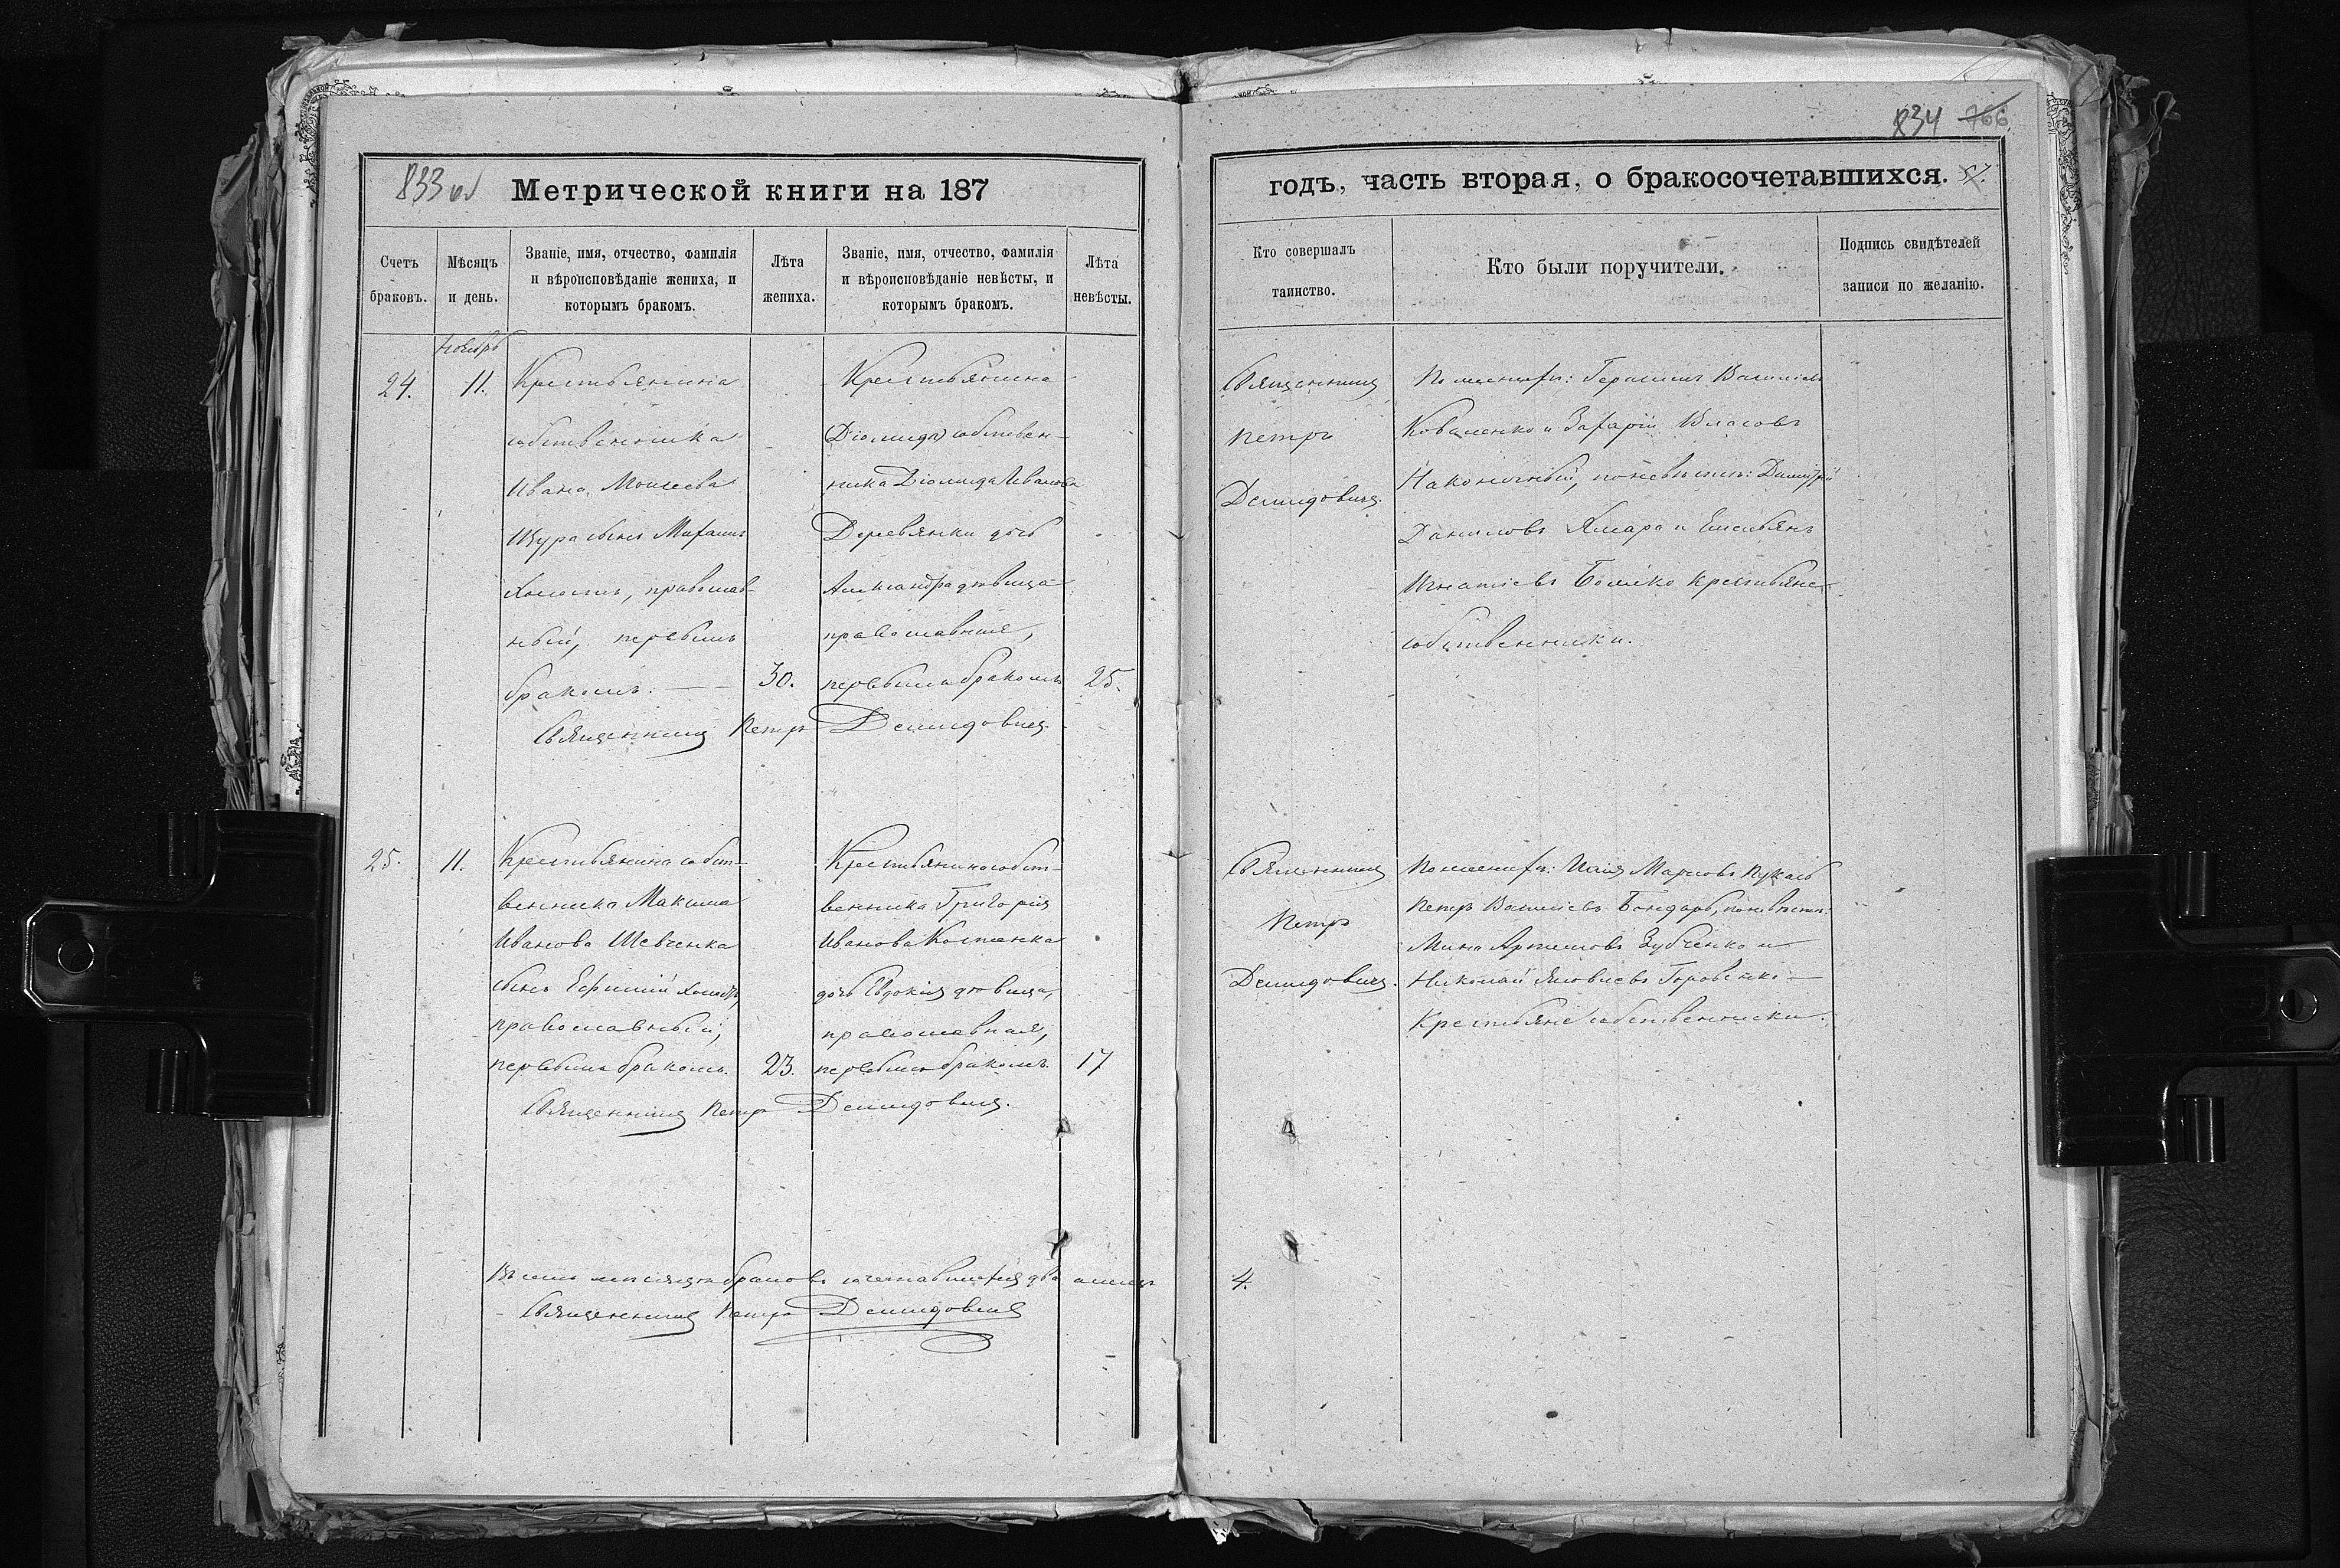 834 766
833 об Метрической книги на 187
годъ, часть вторая, о бракосочетавшихся. 57.
Счетъ браковъ.
Мѣсяцъ и день.
Званіе, имя, отчество, фамилія
и вѣроисповѣданіе жениха, и
которымъ бракомъ.
Лѣта жениха.
Званіе, имя, отчество, фамилія
и вѣроисповѣданіе невѣсты, и
которымъ бракомъ.
Лѣта невѣсты.
Кто совершалъ таинство.
Кто были поручители.
Подпись свидѣтелей
записи по желанію.
Ноябрь
24.
11.
Крестьянина
собственника
Ивана Моисеева
сынъ
холостъ, православ-
ный, первымъ
бракомъ.
30.
Крестьянина
собствен-
ника Діомида Иванова
Деревянки дочь
Александра дѣвица
православная,
первымъ бракомъ
25.
Священникъ Петръ Демидовичъ
Священникъ
Петръ
Демидовичъ.
По женихѣ: Герасимъ Василіевъ
Коваленко и Захарій Власовъ
Наконечный, по невѣстѣ: Димитрій
Даниловъ и Емельянъ
Игнатіевъ крестьяне
собственники.
25.
11.
Крестьянина собст-
венника Максима
Иванова Шевченка
сынъ холостъ,
православный,
первымъ бракомъ.
23.
Крестьянина собст-
венника Григорія
Иванова Костенка
дочь Евдокія дѣвица,
православная,
первымъ бракомъ.
17
Священникъ Петръ Демидовичъ.
Священникъ
Петръ
Демидовичъ.
По женихѣ: Марковъ
Петръ Василіевъ Бондарь, по невѣстѣ:
Мина Артемовъ Зубченко и
Николай Яковлевъ
Крестьяне собственники.
Въ семъ мѣсяцѣ браковъ два
4.
Священникъ Петръ Демидовичъ